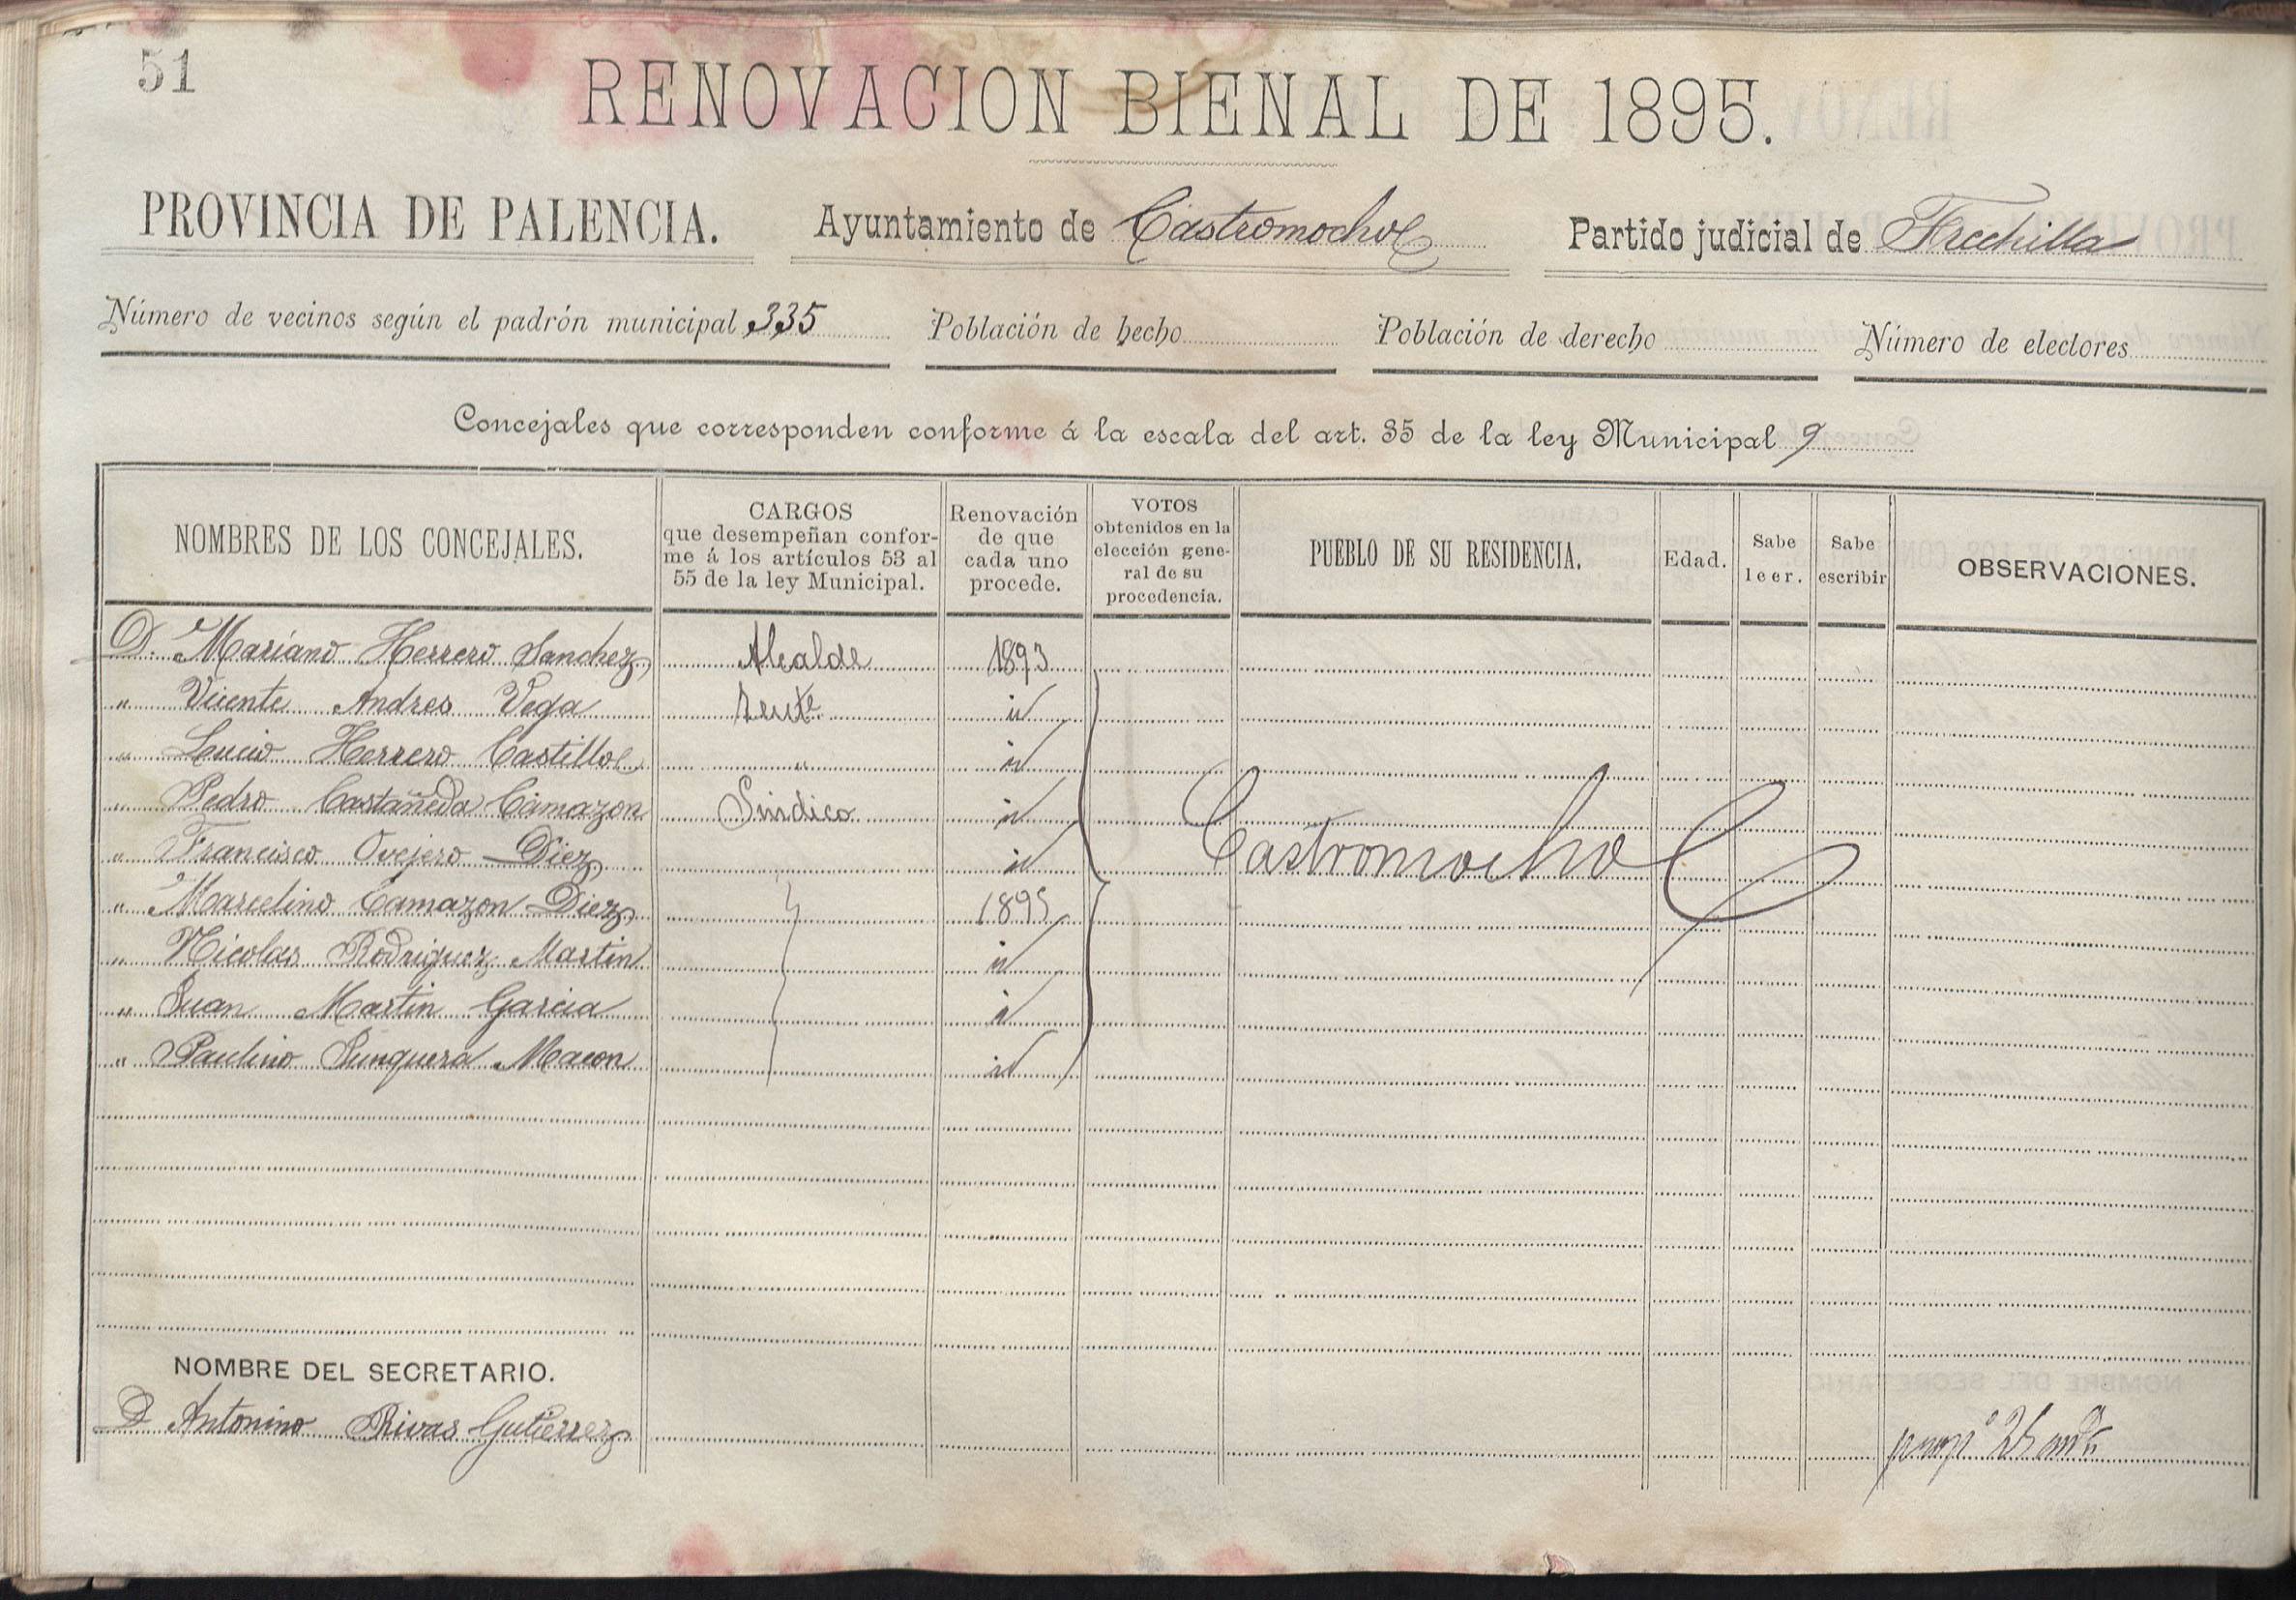 51
RENOVACION BIENAL DE 1895.
PROVINCIA DE PALENCIA. Ayuntamiento de Castromocho Partido judicial de Frechilla
Número de vecinos según el padrón municipal 335 Población de hecho Población de derecho Número de electores
Concejales que corresponden conforme á la escala del art. 35 de la ley Municipal 9
NOMBRES DE LOS CONCEJALES.
CARGOS
que desempeñan confor-
me á los artículos 53 al
55 de la ley Municipal.
Renovación
de que
cada uno
procede.
VOTOS
obtenidos en la
elección gene-
ral de su
procedencia.
PUEBLO DE SU RESIDENCIA.
Edad.
Sabe
leer.
Sabe
escribir
OBSERVACIONES.
D. Mariano Herrero Sanchez Alcalde 1893
" Vicente Andres Vega Tente id
" Lucio Herrero Castillo " id
" Pedro Castañeda Camazon Sindico id
" Francisco Ovejero Diez id
Castromocho
" Marcelino Camazon Diez 1895
" Nicolas Rodriguez Martin id
" Juan Martin Garcia id
" Paulino Junquera Macon id
NOMBRE DEL SECRETARIO.
D Antonino Rivas Gutierrez